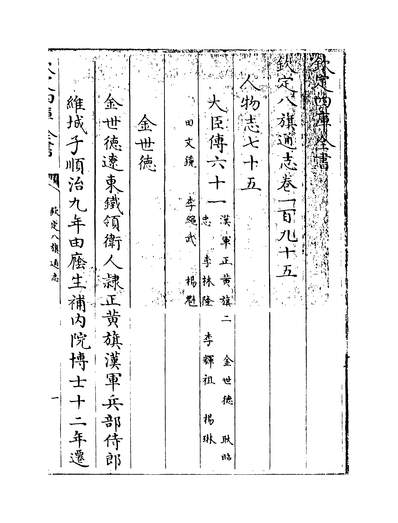 欽定四庫全書
欽定八旗通志卷一百九十五
人物志七十五
大臣傳六十一
漢軍正黃旗二 金世德 耿昭
忠 李林隆 李輝祖 楊琳
田文鏡 李繩武 楊𩲸
金世德
金世德遼東鐵領衛人隷正黃旗漢軍兵部侍郎
維城子順治九年由廕生補內院博士十二年遷
欽定八旗通志
一